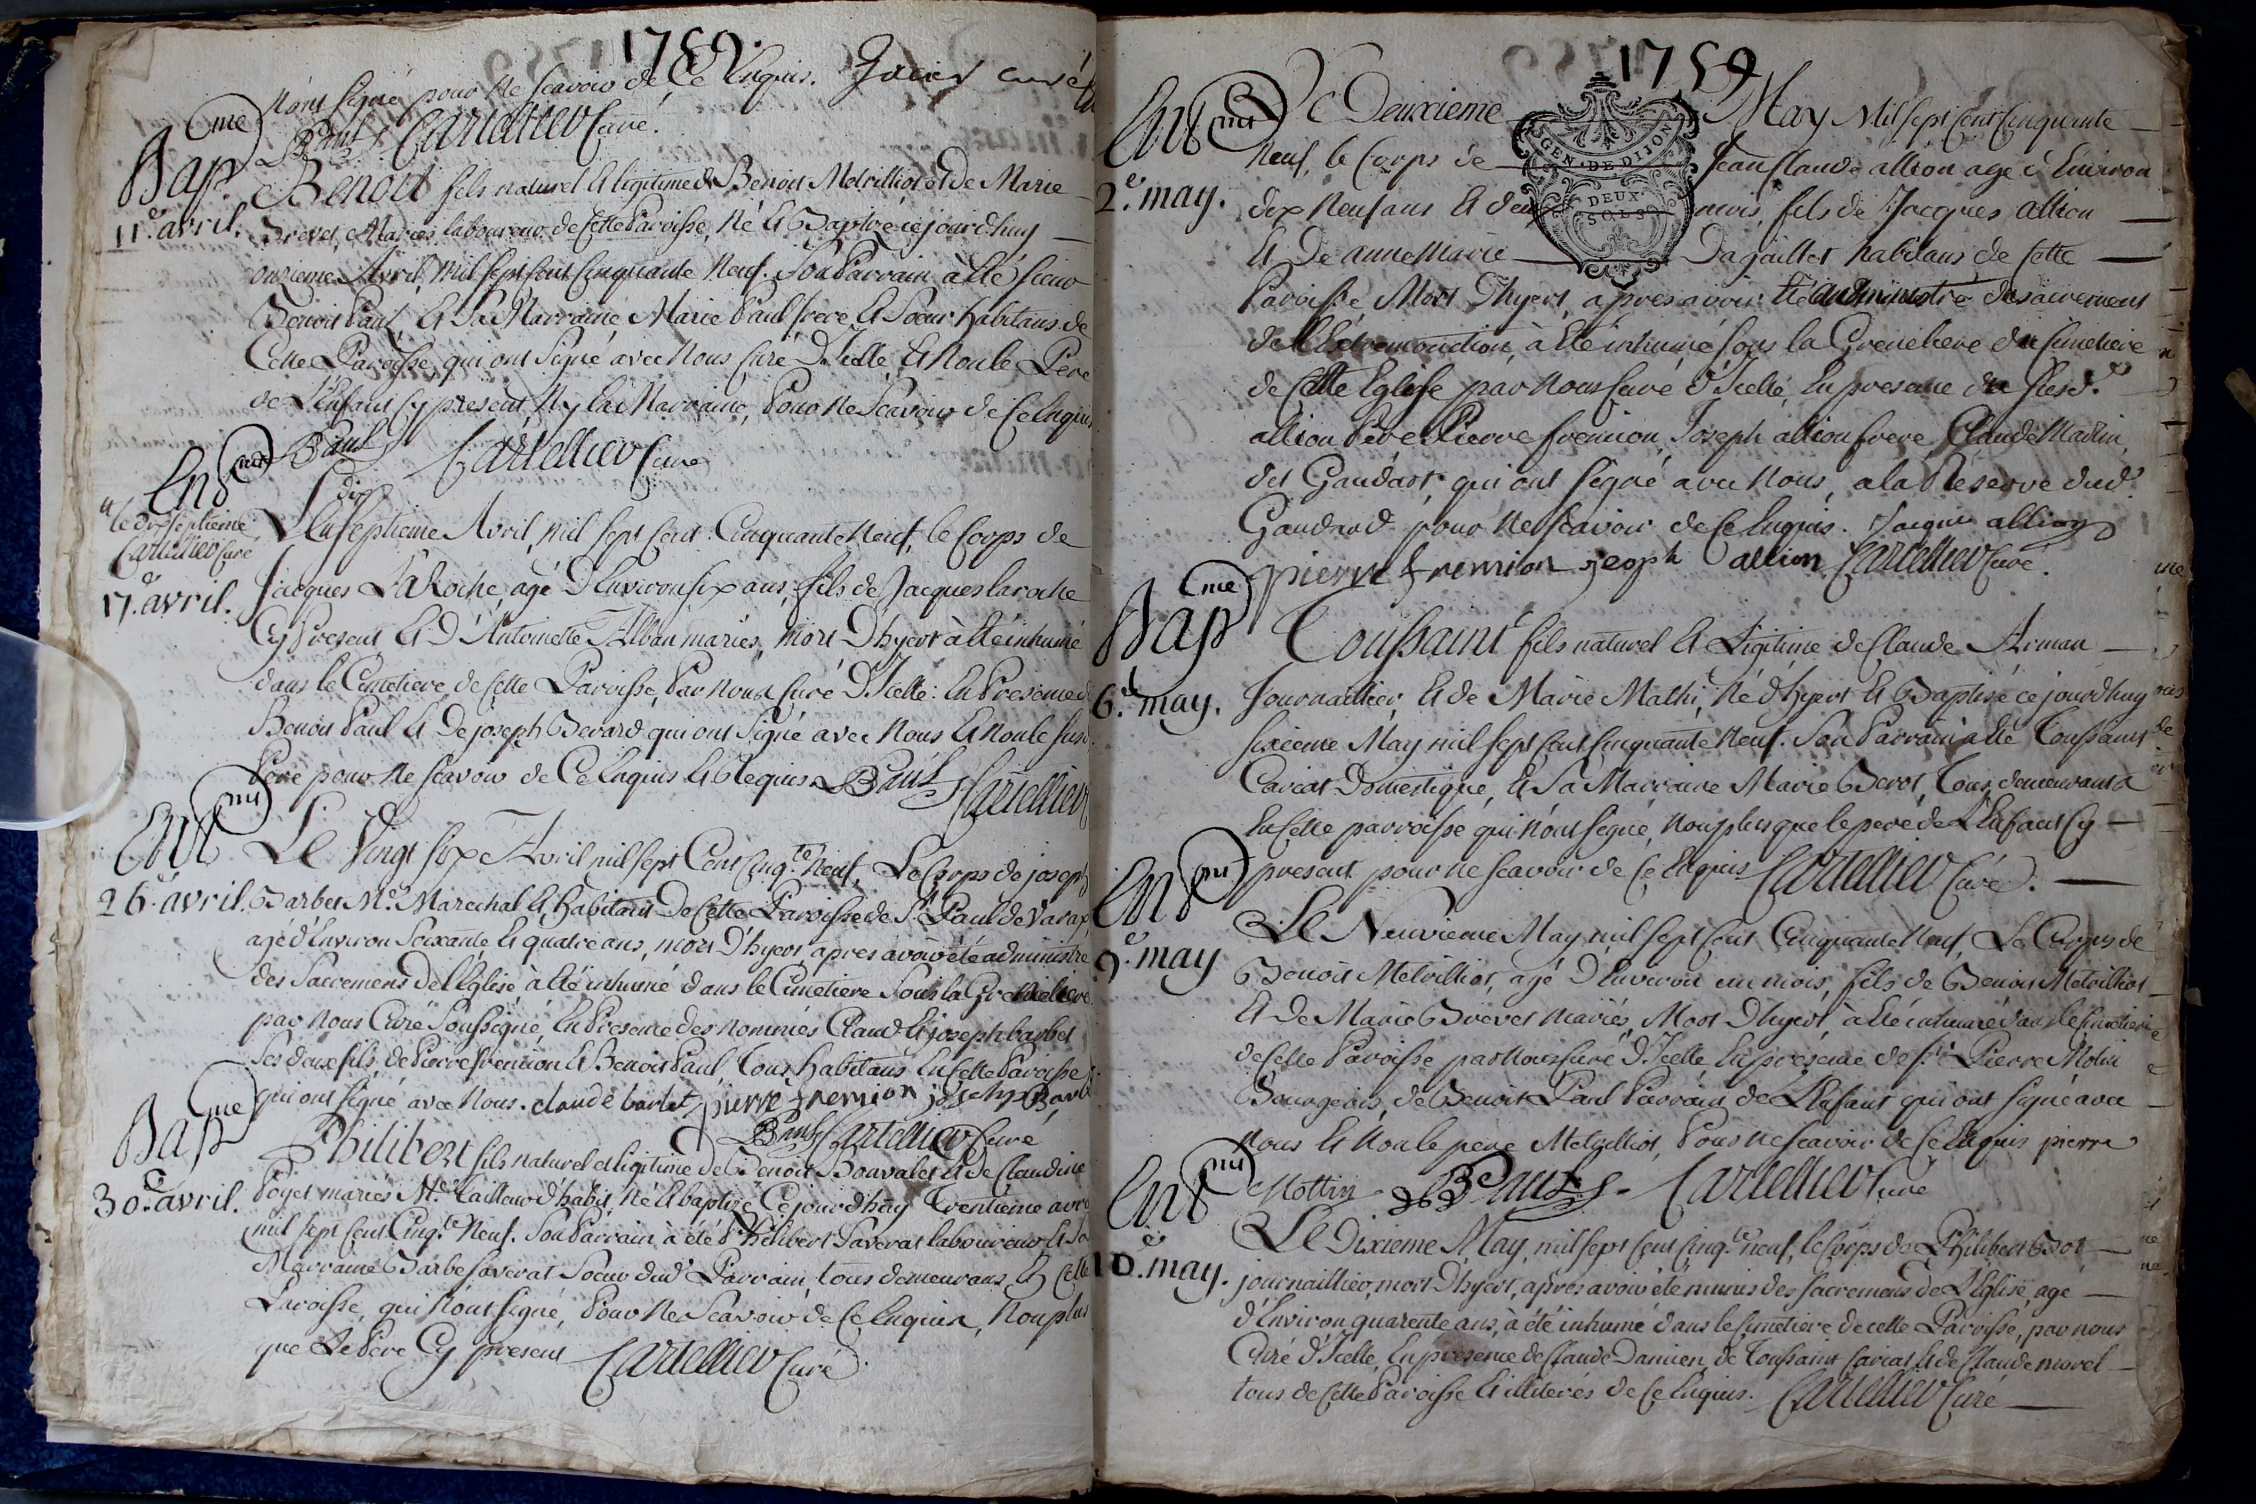 1759.
n'ont signé pour ne scavoir de ce Enquis. Javier curé
Paul Cartellier Curé.
Bap me
11.e avril.
Benoit fils naturel et legitime de Benoit Metrilliot et de Marie
Brevet, Mariés laboureur de Cette Paroisse, né et Baptisé cejourdhuy
onzieme Avril, mil sept Cent Cinquante Neuf. Son Parrain à été sieur
Benoit Paul, et Sa Marraine Marie Paul frere et Soeur habitans de
Cette Paroisse, qui ont Signé avec Nous Curé D'Icelle, et Non le Pere
de L'Enfant Cy present, Ny la Marraine, Pour Ne Scavoir de Ce Enquis
Paul Cartellier Curé
Ent ment
le dix septieme
Cartellier Curé
17.e avril.
dix
Le septieme Avril, mil sept Cent Cinquante Neuf, le Corps de
Jacques LaRoche, agé D'Environ six ans, fils de Jacques laroche
Cy Present, et D'Antoinette Alban mariés, mort D'hyert à été inhumé
dans le Cimetiere, de Cette Paroisse, Par Nous Curé D'Icelle: En Presence de
Benoit Paul et De joseph Berard qui ont Signé avec Nous et Non le susd.
Pere pour Ne Scavoir de Ce Enquis et Requis. Paul Cartellier
Ent ment
26.e avril.
Le Vingt six Avril mil sept Cent Cinq.te Neuf, Le Corps de joseph
Barbet M.e Marechal et habitant De Cette Paroisse de S.t Paul de Varax,
agé d'Environ Soixante et quatre ans, mort D'hyert, apres avoir été administré
des Sacremens De l'Eglise, à été inhumé dans le Cimetiere Sous la Greneliere
par Nous Curé Soussigné, En Presence des nommés Claude et joseph barbet
ses deux fils, de Pierre fremion et Benoit Paul, Tous habitans En Cette Paroisse
qui ont signé avec Nous. claude barbet pierre fremion joseph Barbet
Paul Cartellier Curé
Bap me
30.e avril.
Philibert fils naturel et legitime de Benoit Bouvalet et de Claudine
Poyet mariés M.e Tailleur d'habit, né et baptizé Cejourd'huy Trentieme avril
mil sept Cent Cinq.te Neuf. Son Parrain à été Philibert Saverat laboureur et Sa
Marraine Barbe Saverat Soeur dud.t Parrain, tous demeurans En Cette
Paroisse, qui n'ont signé, Pour Ne Scavoir de Ce Enquis, Non plus
que Le Pere Cy present Cartellier Curé.
1759
Ent ment
2.e may.
GEN. DE DIJON
DEUX
SOLS
Le Deuxieme May Mil sept Cent Cinquante
Neuf, le Corps de Jean Claude allion agé d'Environ
dix Neuf ans et deux mois, fils de Jacques allion
et De anne Marie Dagallier habitans de Cette
Paroisse, Mort D'hyert, apres avoir été administré du sacrement
de l'Extremonction, à été inhumé sous la Greneliere du simetiere
de Cette Eglise par Nous Curé d'Icelle, En presence du susd.t
allion Pere Pierre fremion, Joseph allion frere, Claude Madin
dit Gaudart, qui ont signé avec Nous, a la Reserve dud.
Gaudard pour Ne scavoir de Ce Enquis. Jacque allion
pierre fremion jeosph allion Cartellier Curé.
Bap me
6.e may.
Toussaint fils naturel et Legitime de Claude Arman
Journallier, et de Marie Mathi, Né d'hyert et Baptisé ce jourdhuy
sixieme May mil sept Cent Cinquante Neuf. Son Parrain a été Toussaint
Cariat Domestique, et Sa Marraine Marie Berot, Tous demeurans
En Cette parroisse qui n'ont signé, Non plus que le pere de L'Enfant Cy
present pour ne scavoir de Ce Enquis Cartellier Curé.
Ent ment
9.e may
Le Neuvieme May mil sept Cent Cinquante Neuf, Le Corps de
Benoit Metrilliot, agé D'Environ un mois, fils de Benoit Metrilliot
et De Marie Brevet mariés, Mort D'hyert, à été inhumé dans le simetiere
de Cette Paroisse par Nous Curé D'Icelle, En presence de s.r Pierre Motin
Bourgeois, de Benoit Paul Parrain de L'Enfant qui ont signé avec
Nous et Non le pere Metrilliot, Pour ne scavoir de Ce Enquis pierre
Mottin BPaul Cartellier Curé
Ent ment
10.e may.
Le Dixieme May, mil sept Cent Cinq.te neuf, le Corps de Philibert Bot
journaillier, mort D'hyert, apres avoir été munis des sacremens de L'Eglise, agé
d'Environ quarente ans, à été inhumé dans le simetiere de cette Paroisse, par nous
Curé d'Icelle, En presence de Claude Damien, de Toussaint Cariat et de Claude morel
tous de Cette Paroisse et illiterés de Ce Enquis. Cartellier Curé